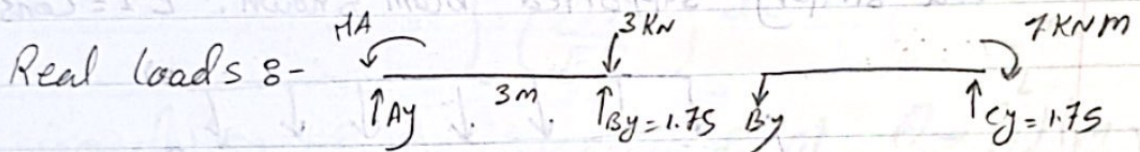 Real loads :- MA 3 KN 7 KN M
3m
Ay By = 1.75 By Cy = 1.75